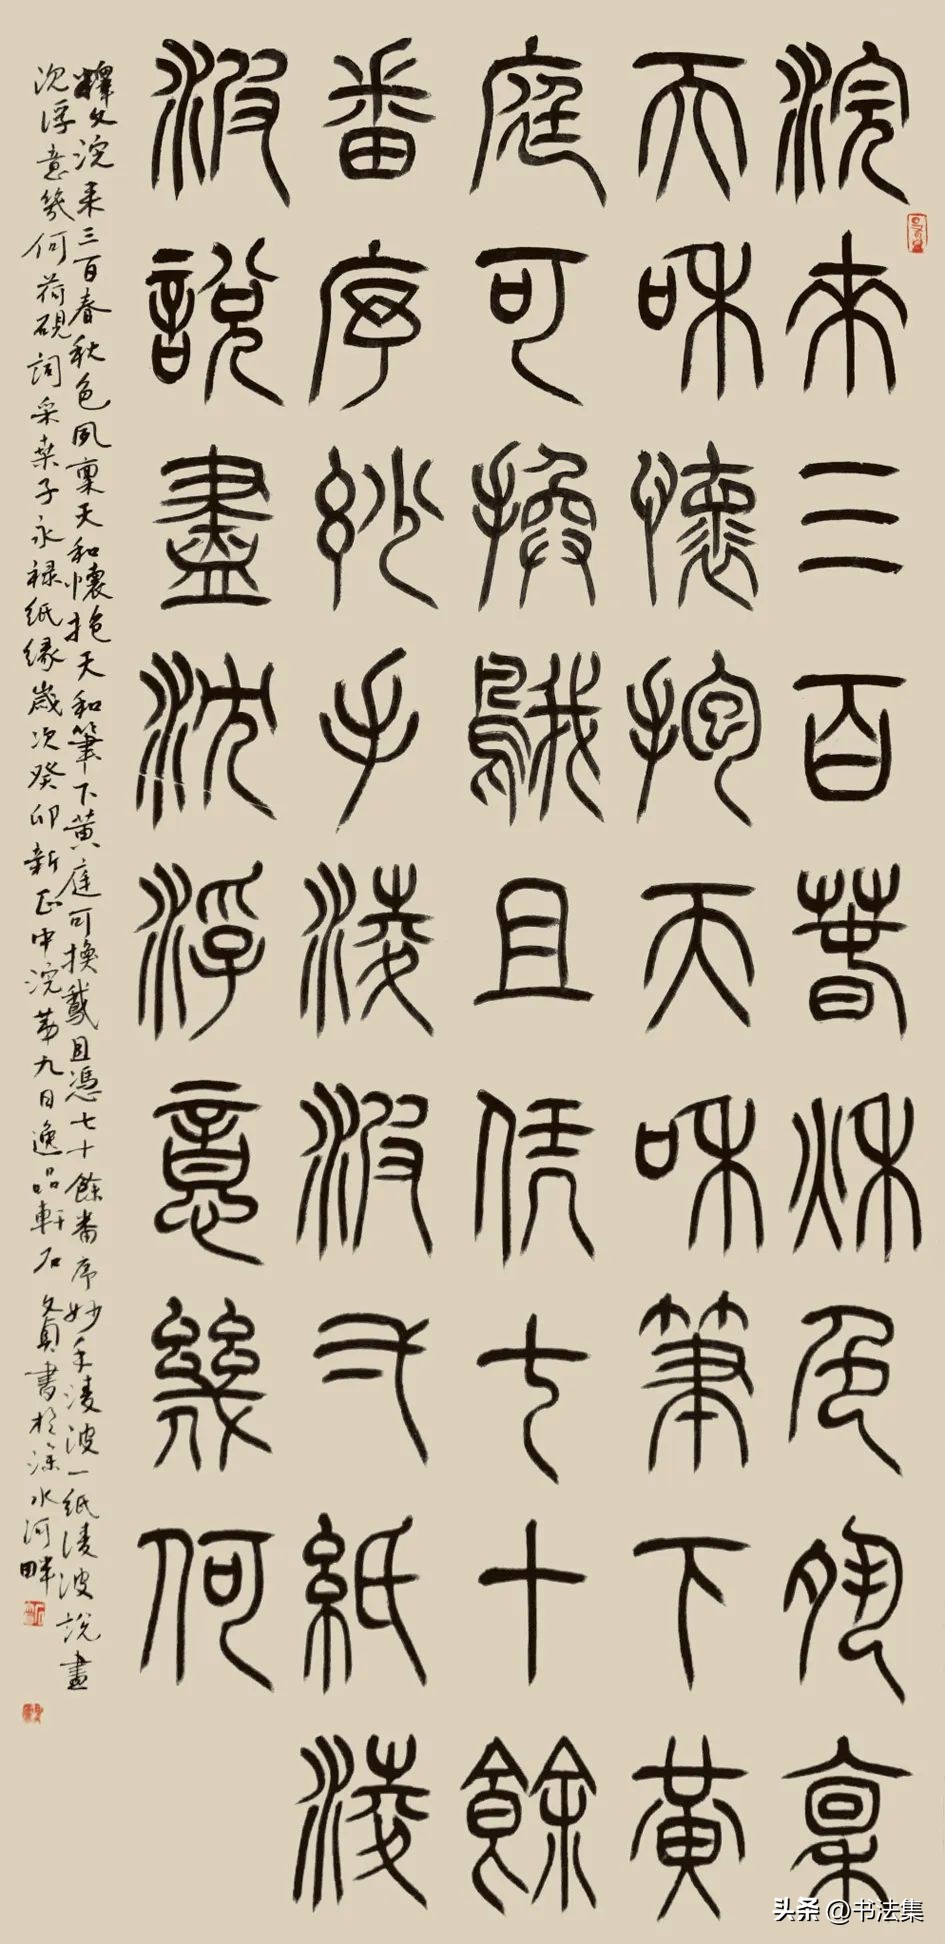 浣来三百春秋色夙稟
天和懷抱天和筆下黃
庭可換鵝且凭七十餘
番序妙手淩波弌紙淩
波說盡沈浮意幾何
釋文浣来三百春秋色夙稟天和懷抱天和筆下黃庭可換鵞且憑七十餘番序妙手淩波一紙淩波說盡
沉浮意幾何荷硯詞采桑子永祿紙緣歲次癸卯新正中浣第九日逸品軒石書於滏水河畔
头条 @书法集